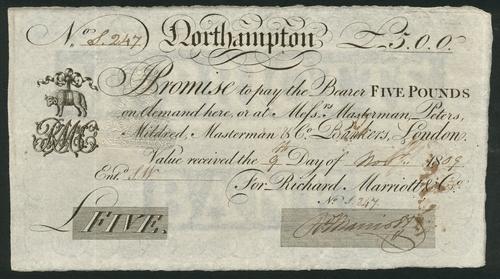 No S.247 Northampton £5.0.0.
I Promise to pay the Bearer FIVE POUNDS
on demand here, or at Messrs Masterman, Peters,
Mildred, Masterman & Co Bankers, London.
Value received the 9th Day of Novr 1809
Entd JW For Richard Marriott & Co
No S.247
£ FIVE. Rd Marriott